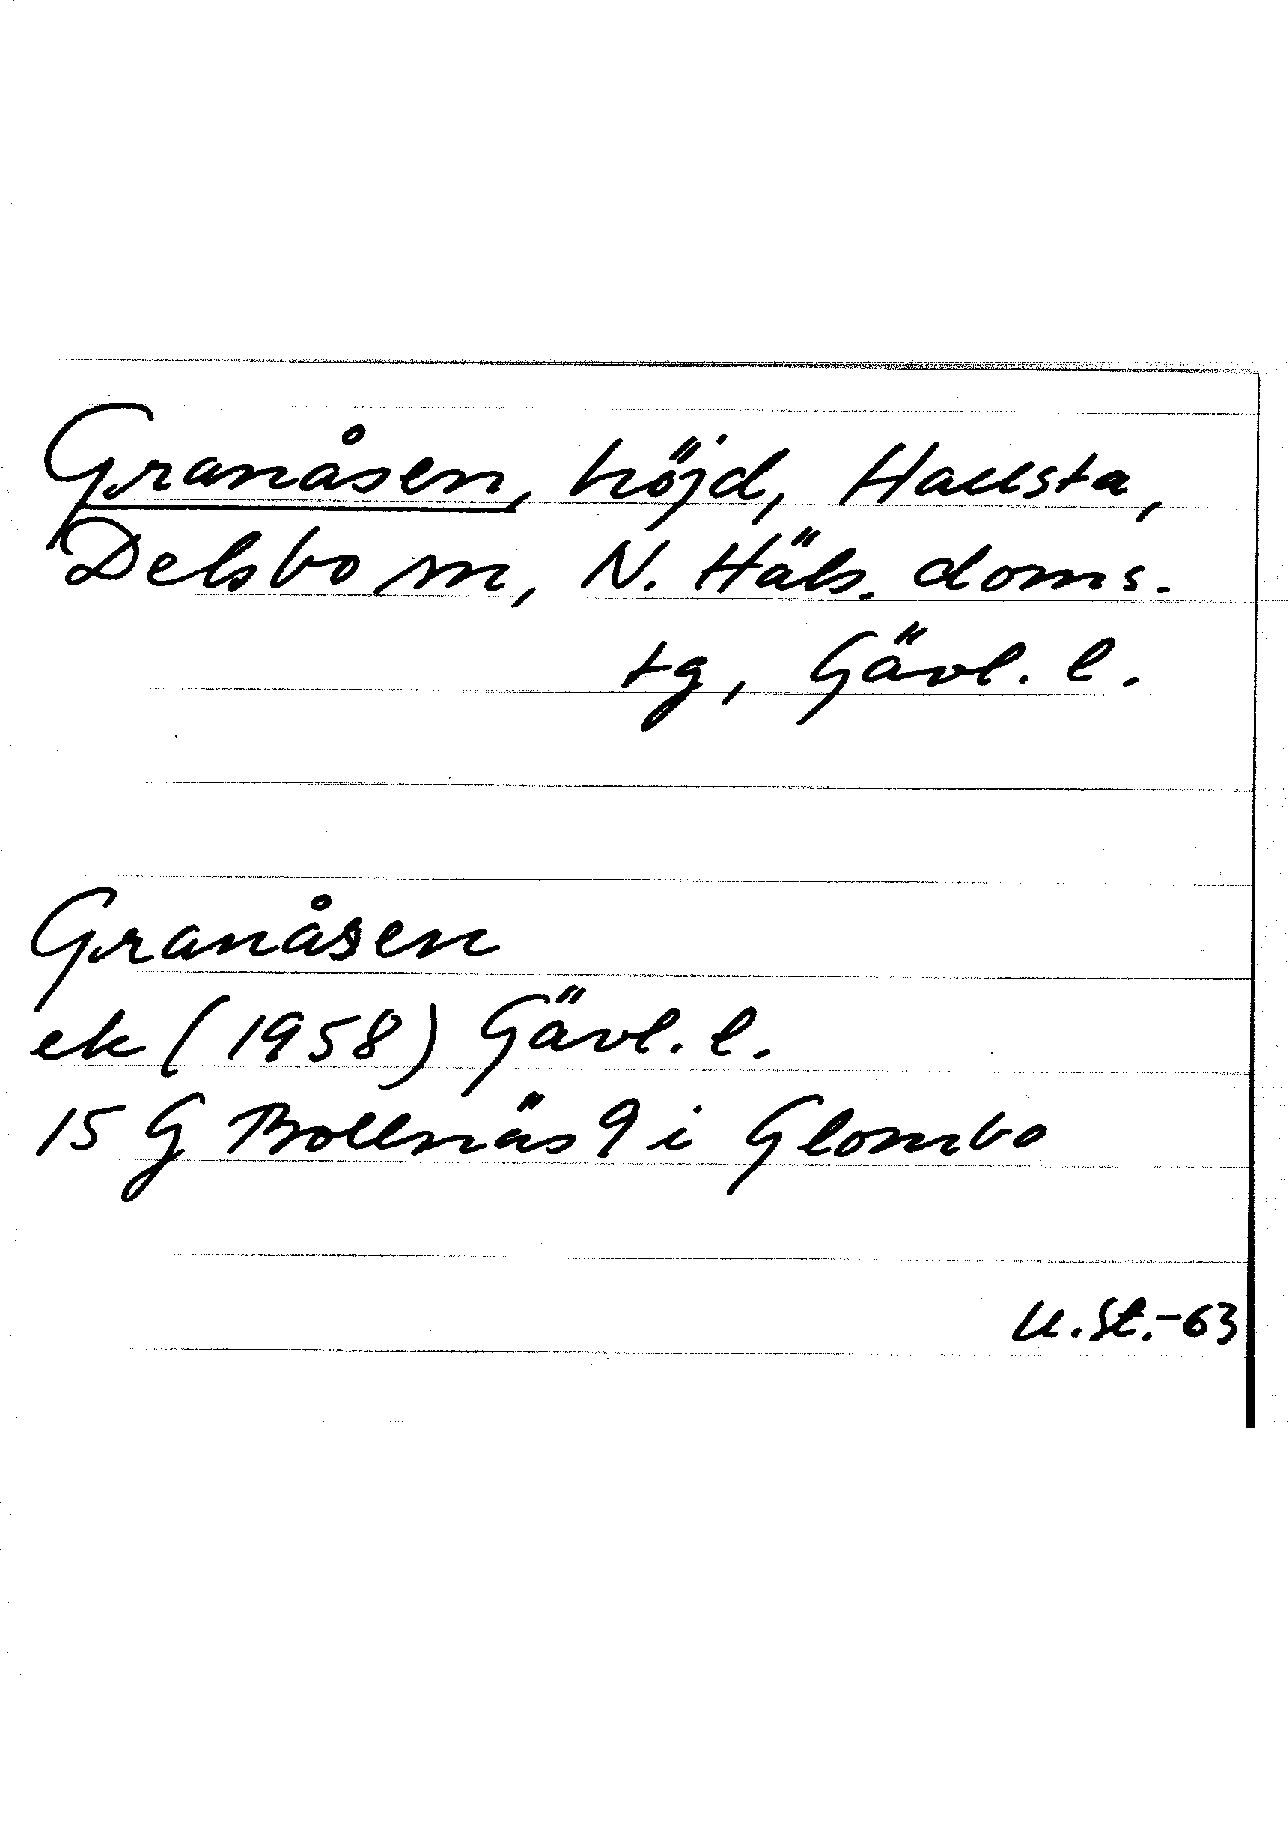 Granåsen, höjd, Hallsta,
Delsbo sn, N. Häls. doms.
tg, Gävl. l.
Granåsen
ek (1958) Gävl. l.
15 G Bollnäs 9 i Glombo
U.St.-63